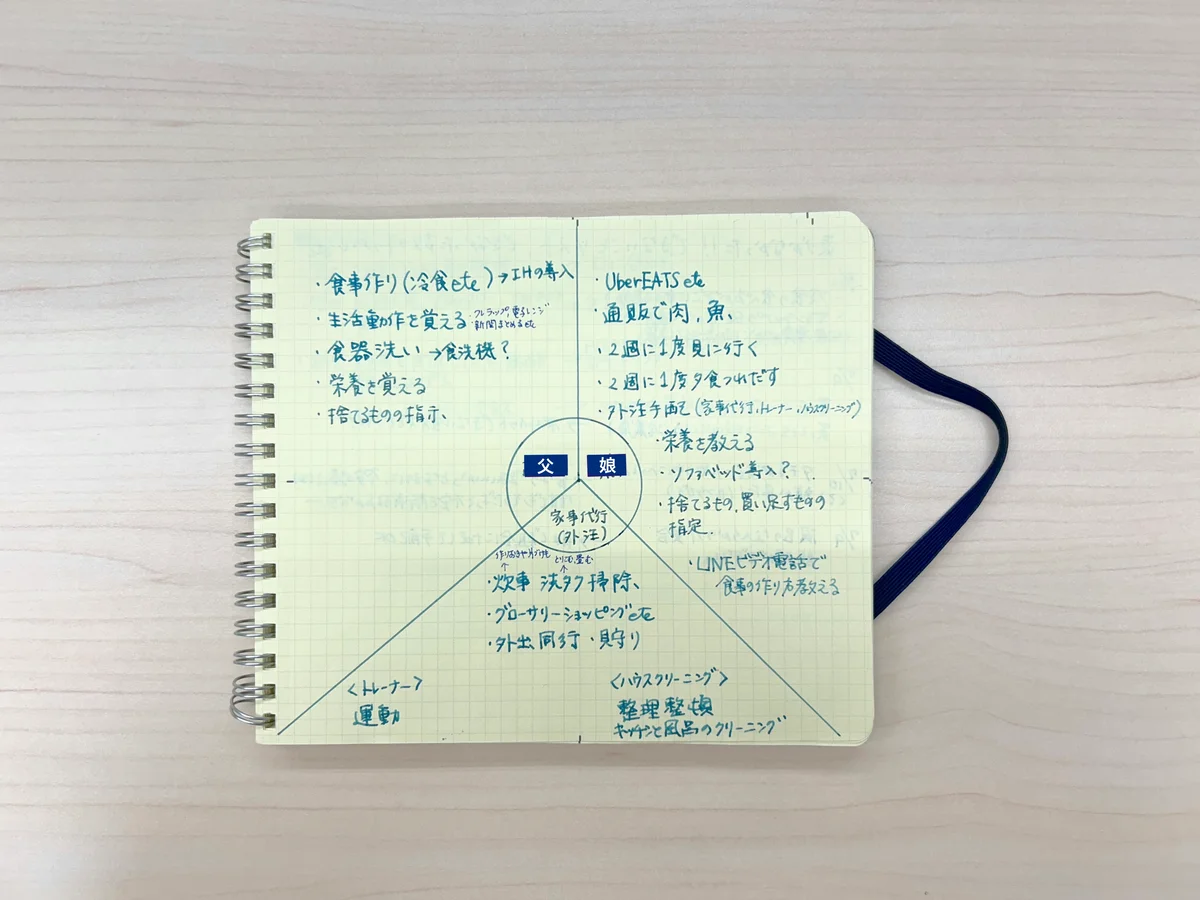 ・食事作り(冷食etc)→IHの導入
・生活動作を覚える
・食器洗い →食洗機?
・栄養を覚える
・捨てるものの指示、
・UberEATS etc
・通販で肉、魚、
・2週に1度見に行く
・2週に1度夕食つれだす
・外注手配(家事代行、トレーナー、ハウスクリーニング)
・栄養を教える
・ソファベッド導入??
・捨てるもの、買い足すものの
指定、
・LINEビデオ電話で
食事の作り方教える
父
娘
家事代行
(外注)
とりこむ、畳む
・炊事 洗タク 掃除、
・グローサリーショッピングetc
・外出同行・見守り
<トレーナー>
運動
<ハウスクリーニング>
整理整頓
キッチンと風呂のクリーニング